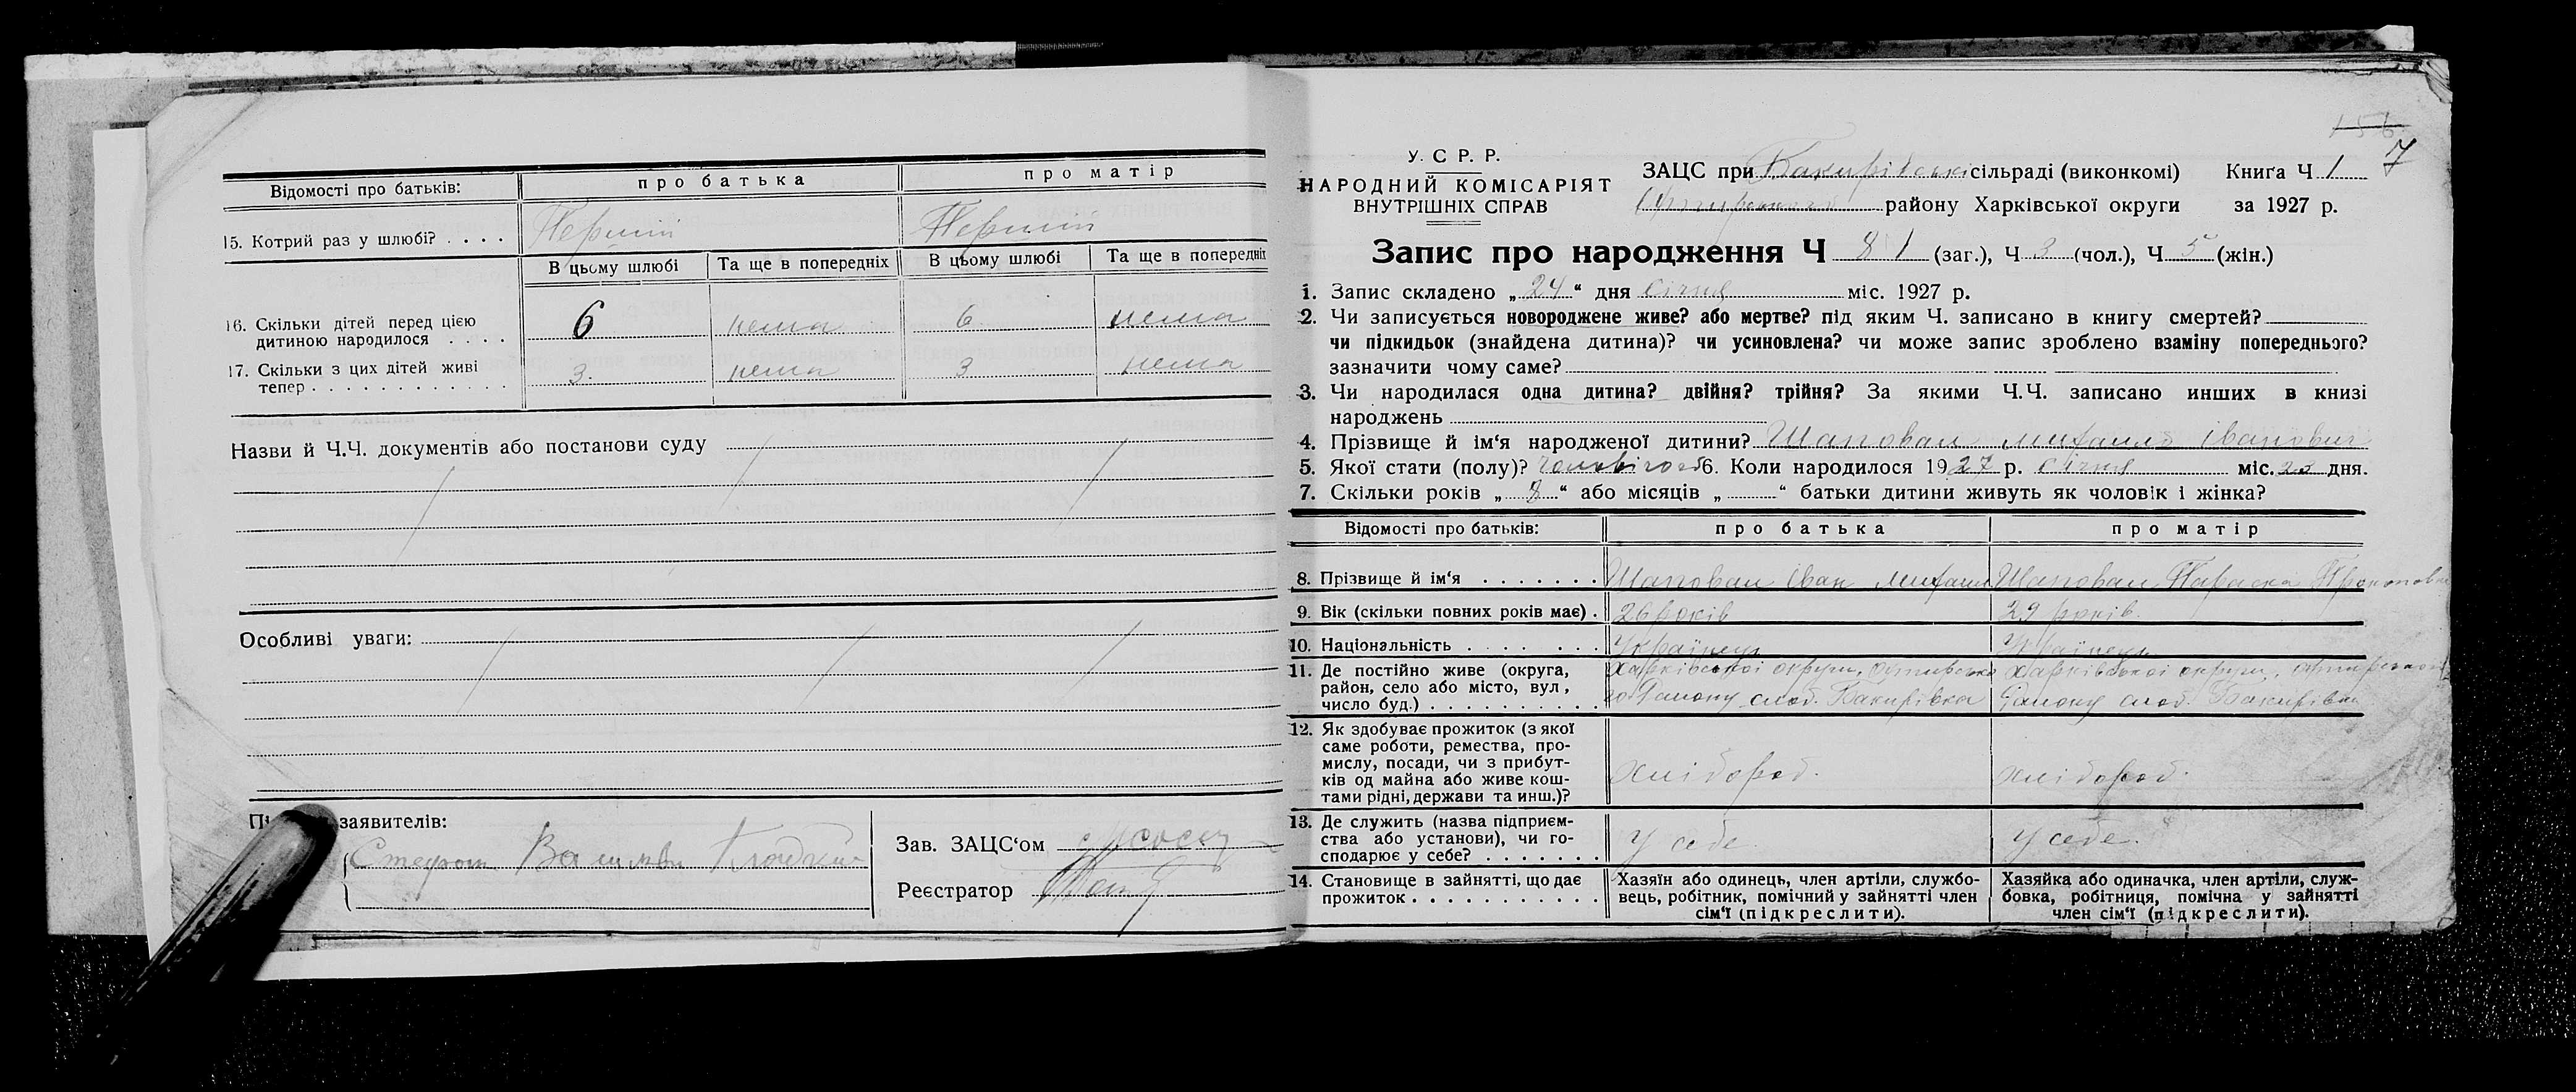 Відомості про батьків: про батька про матір
15. Котрий раз у шлюбі? . . . . Перший Перший
В цьому шлюбі Та ще в попередніх В цьому шлюбі Та ще в попередніх
16. Скільки дітей перед цією
дитиною народилося . . . . 6 нема 6 нема
17. Скільки з цих дітей живі
тепер . . . . . . . . . . . . 3. нема 3 нема
Назви й Ч.Ч. документів або постанови суду
Особливі уваги:
заявителів:
Зав. ЗАЦС‘ом
Реєстратор
156
7
У. С Р. Р.
НАРОДНИЙ КОМІСАРІЯТ
ВНУТРІШНІХ СПРАВ
ЗАЦС при Бакирівські сільраді (виконкомі) Книґа Ч 1
району Харківської округи за 1927 р.
Запис про народження Ч 8 1 (заг.), Ч 3 (чол.), Ч 5 (жін.)
1. Запис складено „ 24 “ дня січня міс. 1927 р.
2. Чи записується новороджене живе? або мертве? під яким Ч. записано в книгу смертей?
чи підкидьок (знайдена дитина)? чи усиновлена? чи може запис зроблено взаміну попереднього?
зазначити чому саме?
3. Чи народилася одна дитина? двійня? трійня? За якими Ч.Ч. записано инших в книзі
народжень
4. Прізвище й ім‘я народженої дитини? Шаповал Михайло Іванович
5. Якої стати (полу)? 6. Коли народилося 1927 р. січня міс. дня.
7. Скільки років „ 8 “ або місяців „ “ батьки дитини живуть як чоловік і жінка?
Відомості про батьків: про батька про матір
8. Прізвище й ім‘я . . . . . . . Шаповал Іван Шаповал Параска
9. Вік (скільки повних років має) . 26 років 29 років
10. Національність . . . . . . . Українець
11. Де постійно живе (округа, Харківської округи, Харківської округи,
район, село або місто, вул, району слоб. Бакирівка району слоб. Бакирівка
число буд.) . . . . . . . . . .
12. Як здобуває прожиток (з якої
саме роботи, ремества, про-
мислу, посади, чи з прибут-
ків од майна або живе кош- хлібороб. хлібороб.
тами рідні, держави та инш.)?
13. Де служить (назва підприєм-
ства або установи), чи го- у себе у себе.
сподарює у себе? . . . . . . .
14. Становище в зайнятті, що дає Хазяїн або одинець, член артіли, службо- Хазяйка або одиначка, член артіли, служ-
прожиток . . . . . . . . . . . вець, робітник, помічний у зайнятті член бовка, робітниця, помічна у зайнятті
сім‘ї (підкреслити). член сім‘ї (підкреслити).